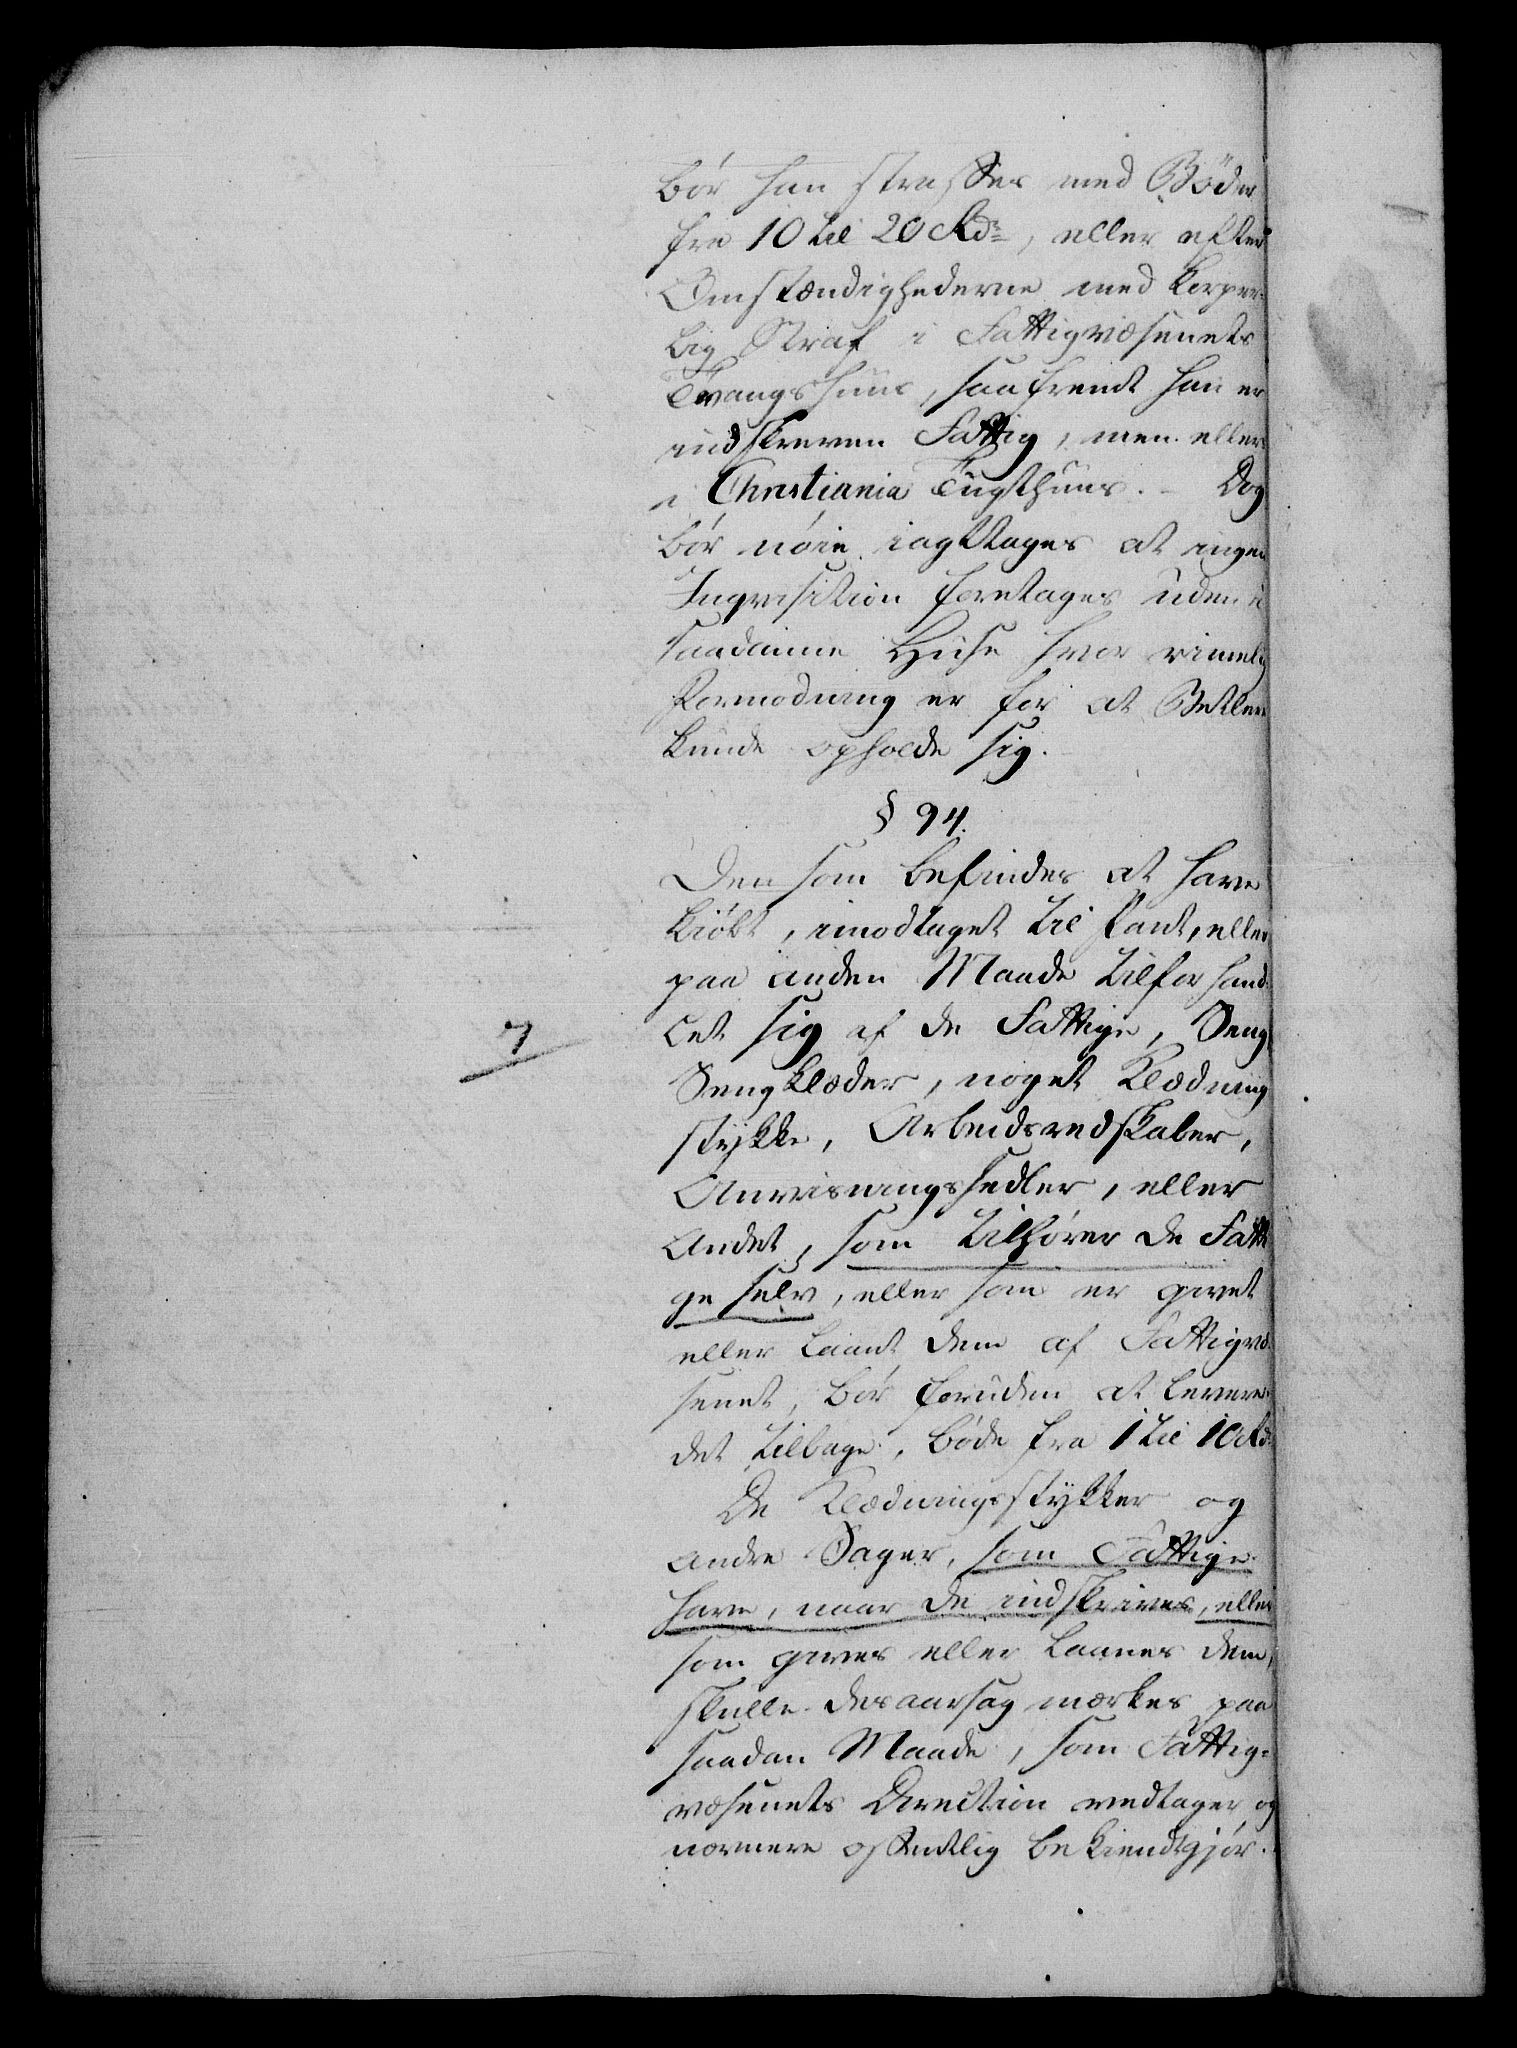 bør han straffes med Bøder
fra 10 til 20 Rdr, eller efter
Omstændighederne med korpor-
lig Straf i Fattigvæsenets
Tvangshuus, saafremt han er
indskreven Fattig, men ellers
i Christiania Tugthuus. - Dog
bør nøie iagttages at ingen
Inqvisition foretages uden i
saadanne Huse hvor rimelig
Formodning er for at Betlere
kunde opholde sig.
§ 94.
Den som befindes at have
kiøbt, imodtaget til Pant, eller
paa anden Maade tilforhand-
let sig af de Fattige, Seng
7
Sengklæder, noget Klædning
stykke, Arbeidsredskaber,
Anvisningssedler, eller
Andet, som tilhører de Fatti
ge selv, eller som er givet
eller laant dem af Fattigvæ
senet, bør foruden at levere
det tilbage, bøde fra 1 til 10 Rd
De Klædningsstykker og
andre Sager, som Fattige
have, naar de indskrives, eller
som gives eller laanes dem,
skulle desaarsag mærkes paa
saadan Maade, som Fattig-
væsenets Direction vedtager og
nærmere offentlig bekiendtgjør.